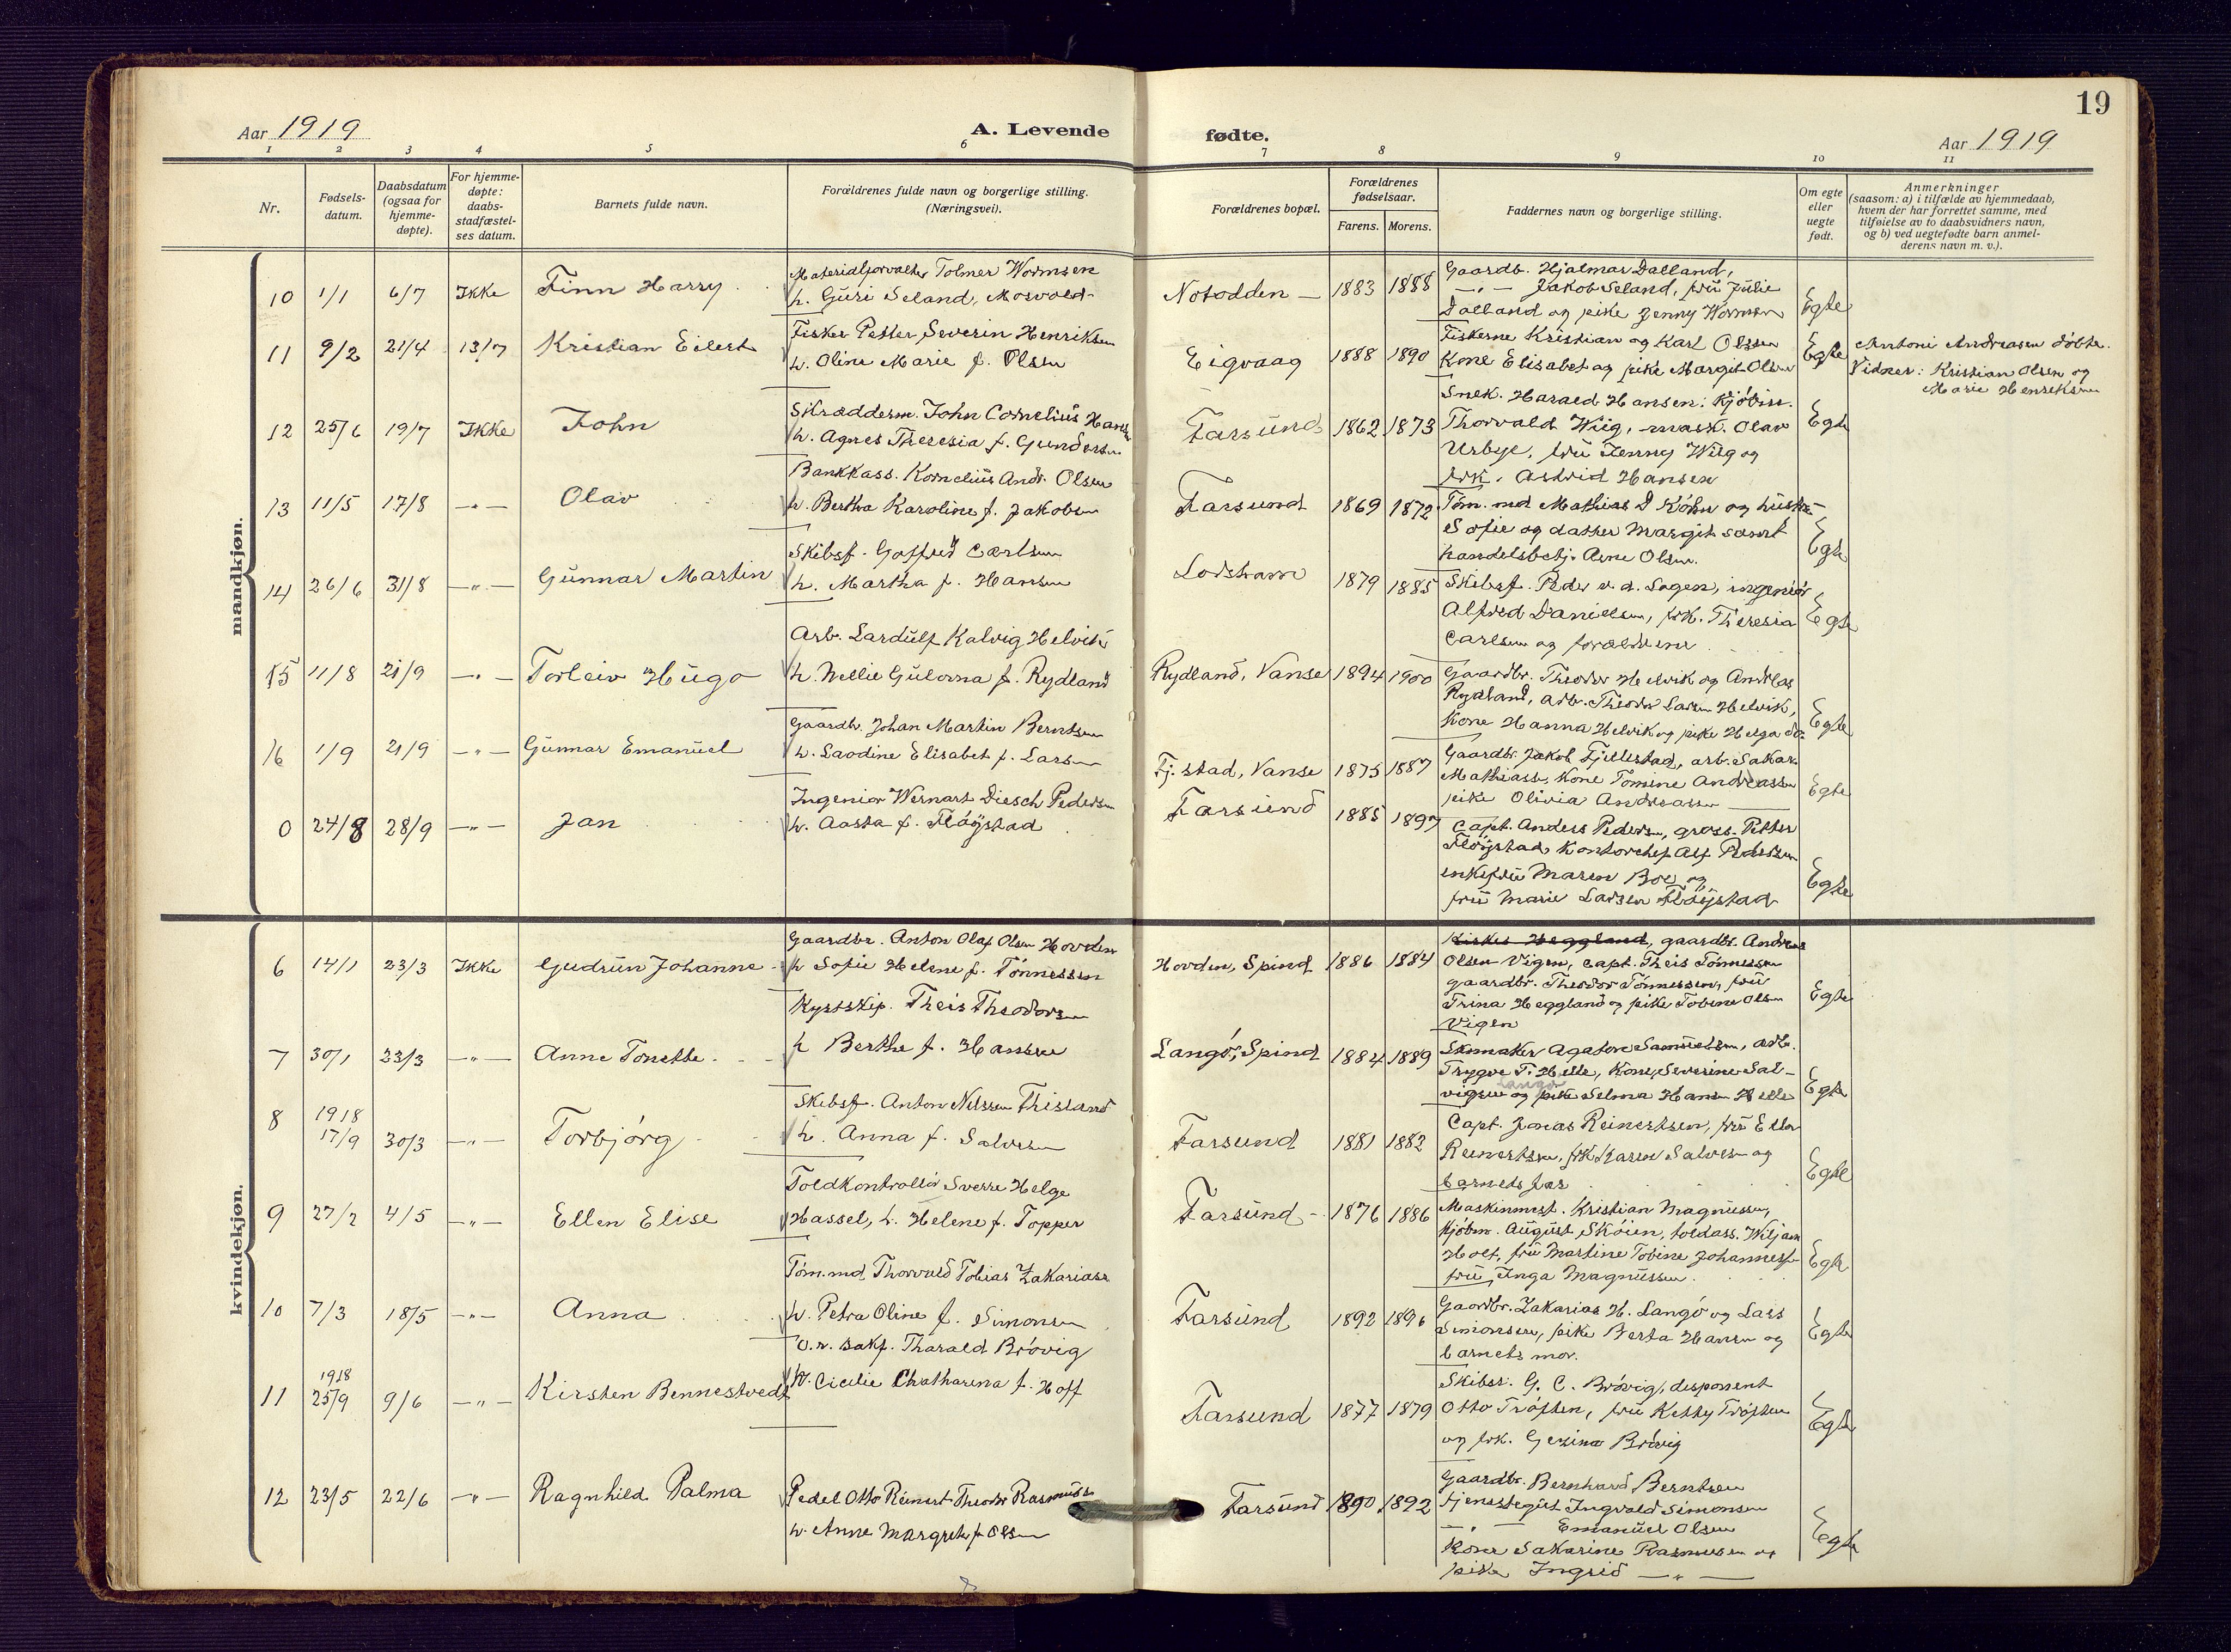 19
Aar 1919
A. Levende
fødte.
Aar 1919
1 2 3 4 5 6 7 8 9 10 11
Nr.
Fødsels-
datum.
Daabsdatum
(ogsaa for
hjemme-
døpte).
For hjemme-
døpte:
daabs-
stadfæstel-
ses datum.
Barnets fulde navn.
Forældrenes fulde navn og borgerlige stilling.
(Næringsvei).
Forældrenes bopæl.
Forældrenes
fødselsaar.
Farens. Morens.
Faddernes navn og borgerlige stilling.
Om egte
eller
uegte
født.
Anmerkninger
(saasom: a) i tilfælde av hjemmedaab,
hvem der har forrettet samme, med
tilføielse av to daabsvidners navn,
og b) ved uegtefødte barn anmel-
derens navn m. v.).
mandkjøn.
10 1/1 6/7 Ikke Finn Harry
Materialforvalter Tolmer Wormsen
h. Guri Seland, Mosvold
Notodden 1883 1888
Gaardb. Hjalmar Dalland,
—"— Jakob Seland, fru Julie
Dalland og pike Jenny Wormsen
Egte
11 9/2 21/4 13/7 Kristian Eilert
Fisker Petter Severin Henriksen
h. Oline Marie f. Olsen
Eigvaag 1888 1890
Fiskerne Kristian og Karl Olsen
Kone Elisabet og pike Margit Olsen
Egte
Antoni Andreasen döbte.
Vidner: Kristian Olsen og
Marie Henriksen
12 25/6 19/7 Ikke John
Skræddderm. John Cornelius Hansen
h. Agnes Theresia f. Gundersen
Farsund 1862 1873
Snek. Harald Hansen, Kjöbm.
Thorvald Wiig, mask. Olav
Urbye, fru Jenny Wiig og
frk. Astrid Hansen
Egte
13 11/5 17/8 —"— Olav
Bankkass. Kornelius Andr. Olsen
h. Bertha Karoline f. Jakobsen
Farsund 1869 1872
Töm. md Mathias D Köhn og hustru
Sofie og datter Margit samt
handelsbetj. Arne Olsen.
Egte
14 26/6 31/8 —"— Gunnar Martin
Skibsf. Gotfred Carlsen
h. Martha f. Hansen
Lodshavn 1879 1885
Skibsf. Peder v. d. Lagen, ingeniör
Alfred Danielsen, frk. Theresia
Carlsen og forældrene
Egte
15 11/8 21/9 —"— Torleiv Hugo
Arb. Lardulf Kalvig Helvik
h. Nellie Gulorna f. Rydland
Rydland, Vanse 1894 1900
Gaardbr. Theodor Helvik og Andreas
Rydland, arb. Theodor Larsen Helvik,
Kone Hanna Helvik og pike Helga do.
Egte
16 1/9 21/9 —"— Gunnar Emanuel
Gaardbr. Johan Martin Berntsen
h. Laodine Elisabet f. Larsen
Fj.stad, Vanse 1875 1887
Gaardbr. Jakob Fjellestad, arb. Sakar.
Mathiass. Kone Tomine Andreassen
pike Olivia Andreassen
Egte
0 24/8 28/9 —"— Jan
Ingeniör Wernart Diesch Pedersen
h. Aasta f. Flöystad
Farsund 1885 1897
Capt. Anders Pedersen, gross. Petter
Flöystad, Kontorchef Alf Pedersen
enkefru Maren Boe og
fru Marie Larsen Flöystad
Egte
kvindekjøn.
6 14/1 23/3 Ikke Gudrun Johanne
Gaardbr. Anton Olaf Olsen Hovden
h. Sofie Helene f. Tönnessen
Hovden, Spind 1886 1884
Heggland, gaardbr. Andreas
Olsen Vigen, capt. Theis Tönnessen
gaardbr. Theodor Tönnessen, fru
Trina Heggland og pike Tobine Olsen
Vigen
Egte
7 30/1 23/3 —"— Anne Tonette
Kystskip. Theis Theodorsen
h Berthe f. Hansen
Langö, Spind 1884 1889
Skomaker Agaton Samuelsen, arb.
Trygve T. Helle, Kone Severine Sal-
vigsen Langö og pike Selma Hansen Helle
Egte
8 1918 17/9 30/3 —"— Torbjörg
Skibsf. Anton Nilssen Thisland
h. Anna f. Salvesen
Farsund 1881 1882
Capt. Jonas Reinertsen, fru Ella
Reinertsen, frk Karen Salvesen og
barnets far
Egte
9 27/2 4/5 —"— Ellen Elise
Toldkontrollör Sverre Helge
Hassel, h. Helene f. Topper
Farsund 1876 1886
Maskinmst. Kristian Magnussen,
Kjöbm. August Sköien, toldass. Wiljam
Holt, fru Martine Tobine Johannes
fru Inga Magnussen.
Egte
10 7/3 18/5 —"— Anna
Töm.md. Thorvald Tobias Zakariass
h. Petra Oline f. Simonsen
Farsund 1892 1896
Gaardbr. Zakarias H. Langö og Lars
Simonsen, pike Berta Hansen og
barnets mor.
Egte
11 1918 25/9 9/6 —"— Kirsten Bennestvedt
O.r. sakf. Tharald Brövig
h. Cicilie Chatharina f. Hoff
Farsund 1877 1879
Skibsr. G. C. Brövig, disponent
Otto Tröften, fru Ketty Tröften
og frk. Gesina Brövig
Egte
12 23/5 22/6 —"— Ragnhild Palma
Pedel Otto Reinert Theodor Rasmuss
h. Anne Margrethe f. Olsen
Farsund 1890 1892
Gaardbr. Bernhard Berntsen
tjenestegut Ingvald Simonsen
—"— Emanuel Olsen
Kone Sakarine Rasmussen og
pike Ingrid —"—
Egte